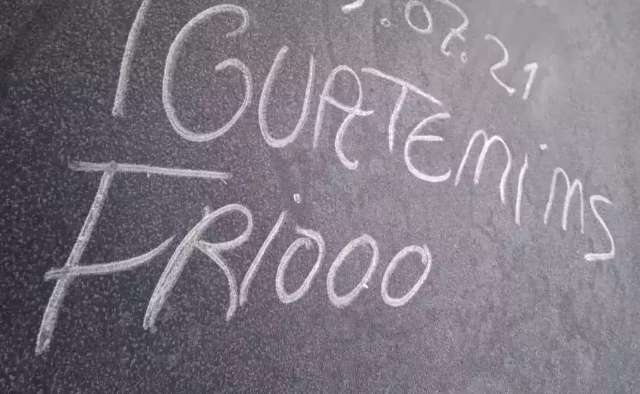 .07.21
IGUATEMI MS
FRIOOO